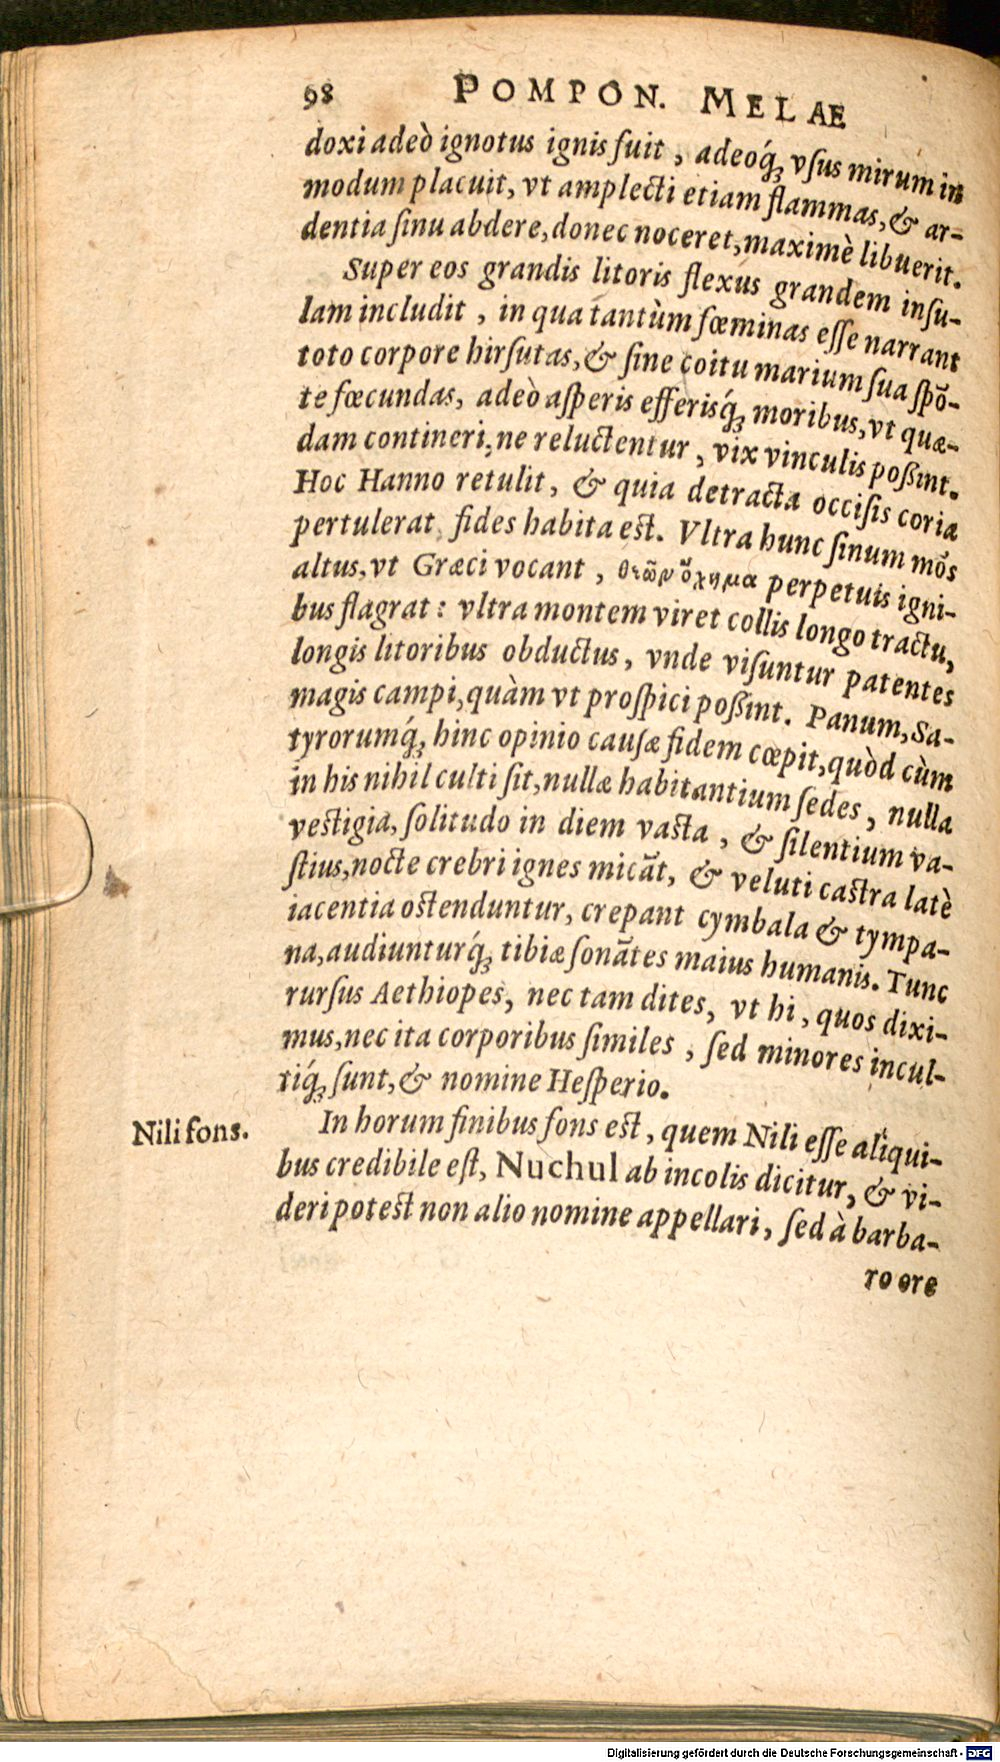 98 POMPON. MELAE
doxi adeò ignotus ignis fuit, adeoq́ꝫ vſus mirum in
modum placuit, vt amplecti etiam flammas, & ar-
dentia ſinu abdere, donec noceret, maximè libuerit.
Super eos grandis litoris flexus grandem inſu-
lam includit, in qua tantùm fœminas eſſe narrant
toto corpore hirſutas, & ſine coitu marium ſua ſpō-
te fœcundas, adeò aſperis efferisq́ꝫ moribus, vt quæ-
dam contineri, ne reluctentur, vix vinculis poßint.
Hoc Hanno retulit, & quia detracta occiſis coria
pertulerat, fides habita est. Vltra hunc ſinum mōs
altus, vt Græci vocant, θεῶν ὄχημα perpetuis igni-
bus flagrat: vltra montem viret collis longo tractu,
longis litoribus obductus, vnde viſuntur patentes
magis campi, quàm vt proſpici poßint. Panum, Sa-
tyrorumq́ꝫ hinc opinio cauſæ fidem cœpit, quòd cùm
in his nihil culti ſit, nullæ habitantium ſedes, nulla
vestigia, ſolitudo in diem vasta, & ſilentium va-
ſtius, nocte crebri ignes micāt, & veluti castra latè
iacentia ostenduntur, crepant cymbala & tympa-
na, audiunturq́ꝫ tibiæ ſonātes maius humanis. Tunc
rurſus Aethiopes, nec tam dites, vt hi, quos dixi-
mus, nec ita corporibus ſimiles, ſed minores incul-
tiq́ꝫ ſunt, & nomine Heſperio.
Nili fons.
In horum finibus fons est, quem Nili eſſe aliqui-
bus credibile eſt, Nuchul ab incolis dicitur, & vi-
deri potest non alio nomine appellari, ſed à barba-
ro ore
Digitalisierung gefördert durch die Deutsche Forschungsgemeinschaft - DFG